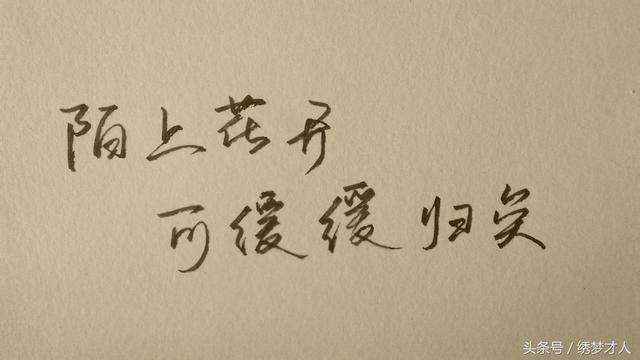 陌上花开
可缓缓归矣
头条号 / 绣梦才人